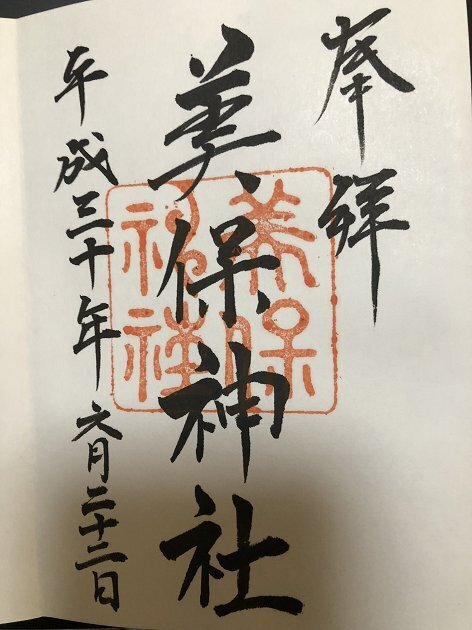 奉拝
美保神社
平成三十年六月二十二日
美保
神社